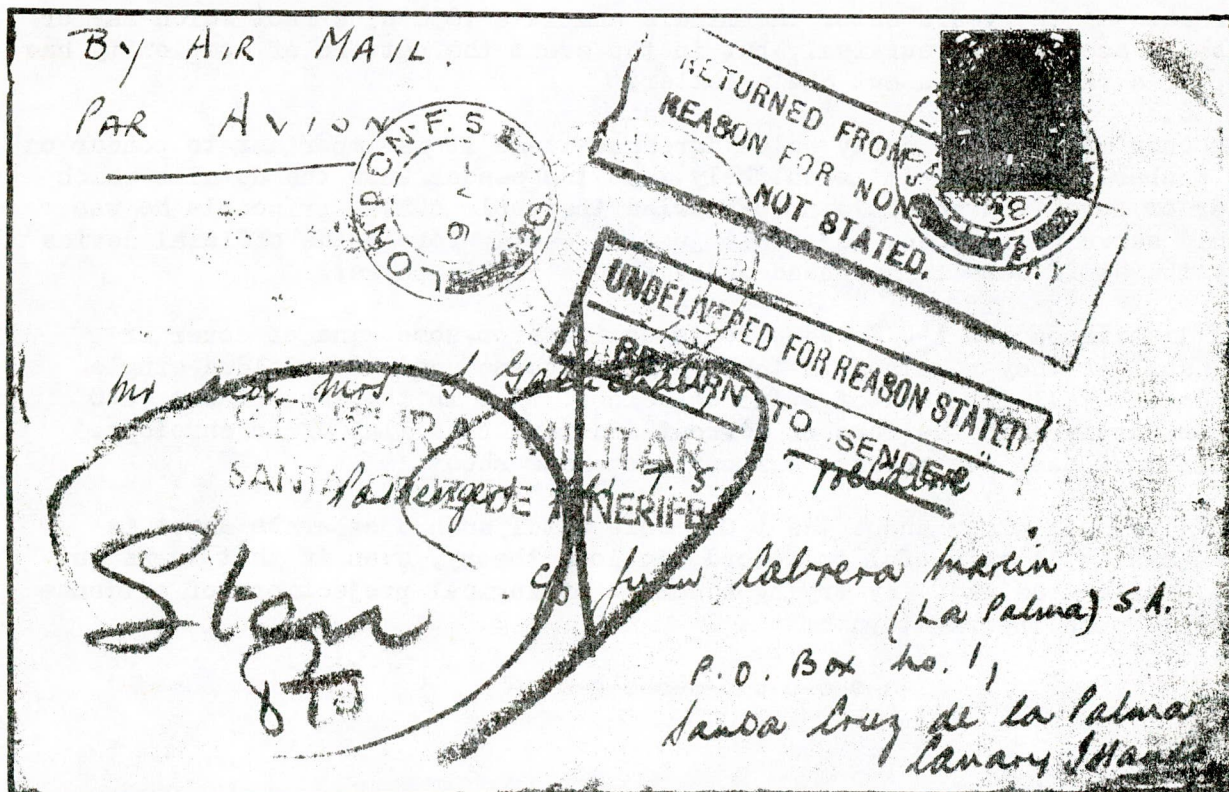 By AIR MAIL.
PAR AVION
LONDON. F.S.
RETURNED FROM
REASON FOR NON
NOT STATED.
UNDELIVERED FOR REASON STATED
RETURN TO SENDER
Mr and Mrs.
MILITAR
SANTA DE TENERIFE
Passengers
c/o Juan Cabrera Martin
(La Palma) S.A.
P.O. Box No. 1,
Santa Cruz de la Palma
Canary Islands